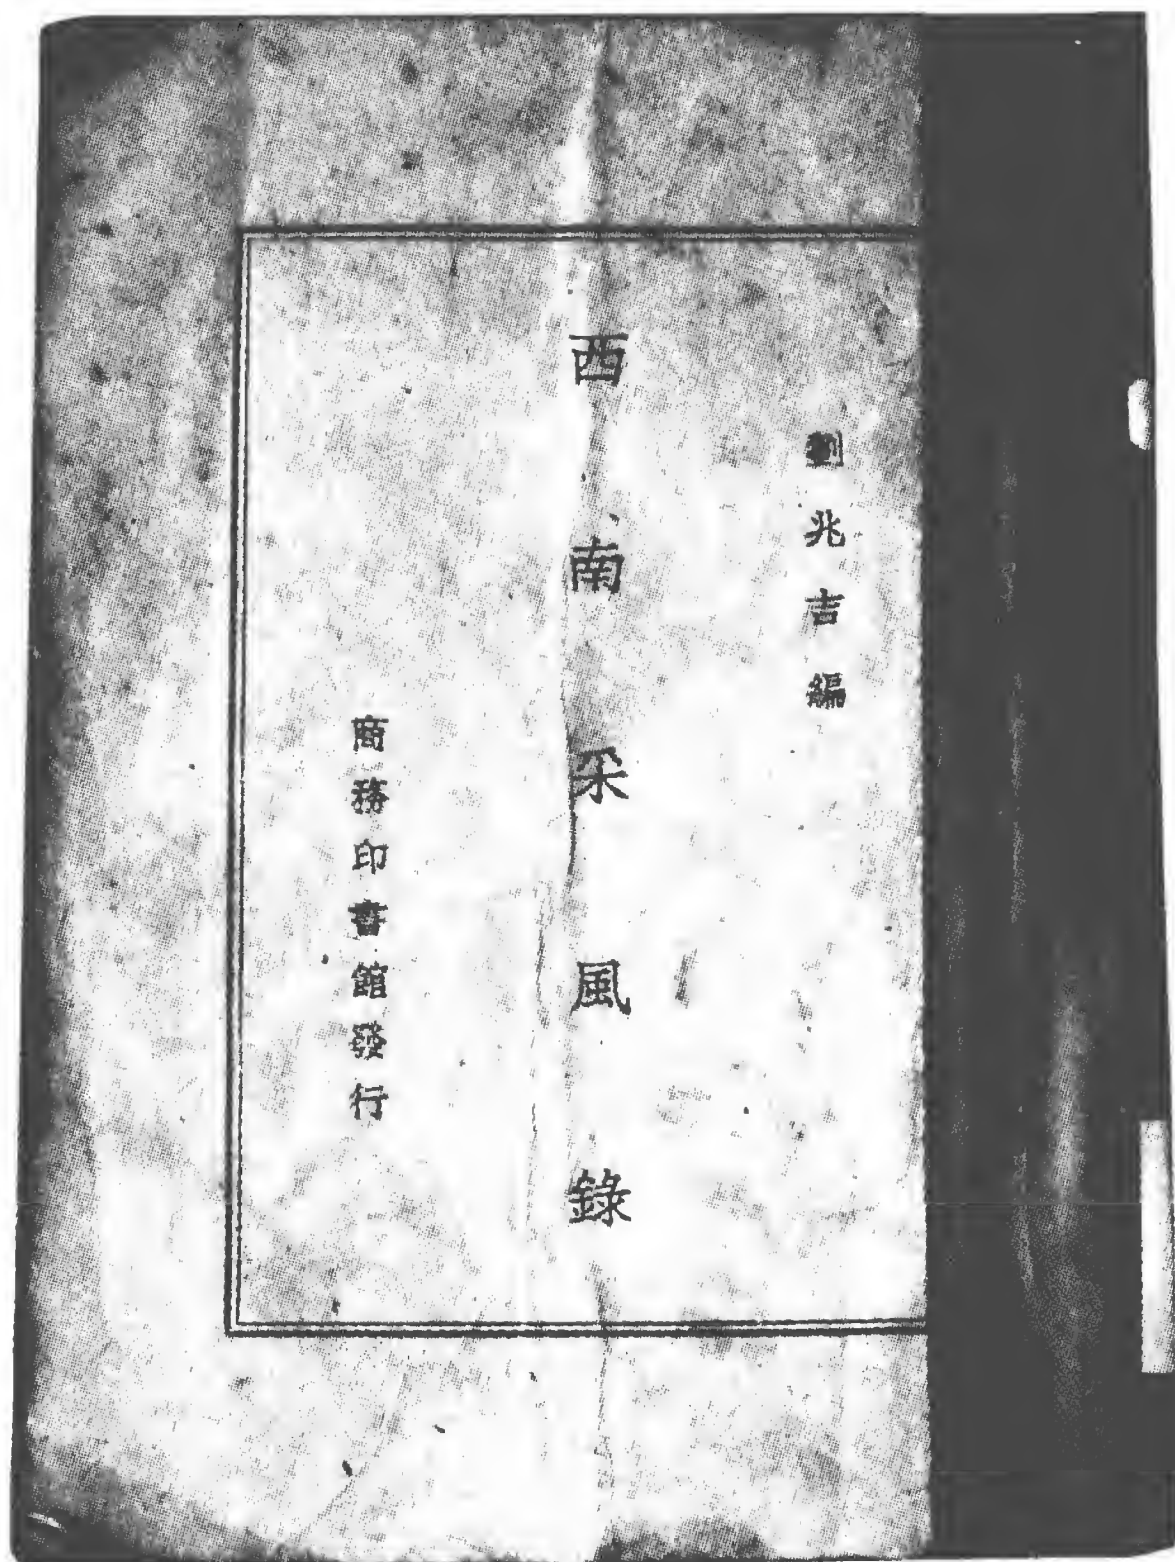 劉兆吉編
西南采風錄
商務印書館發行